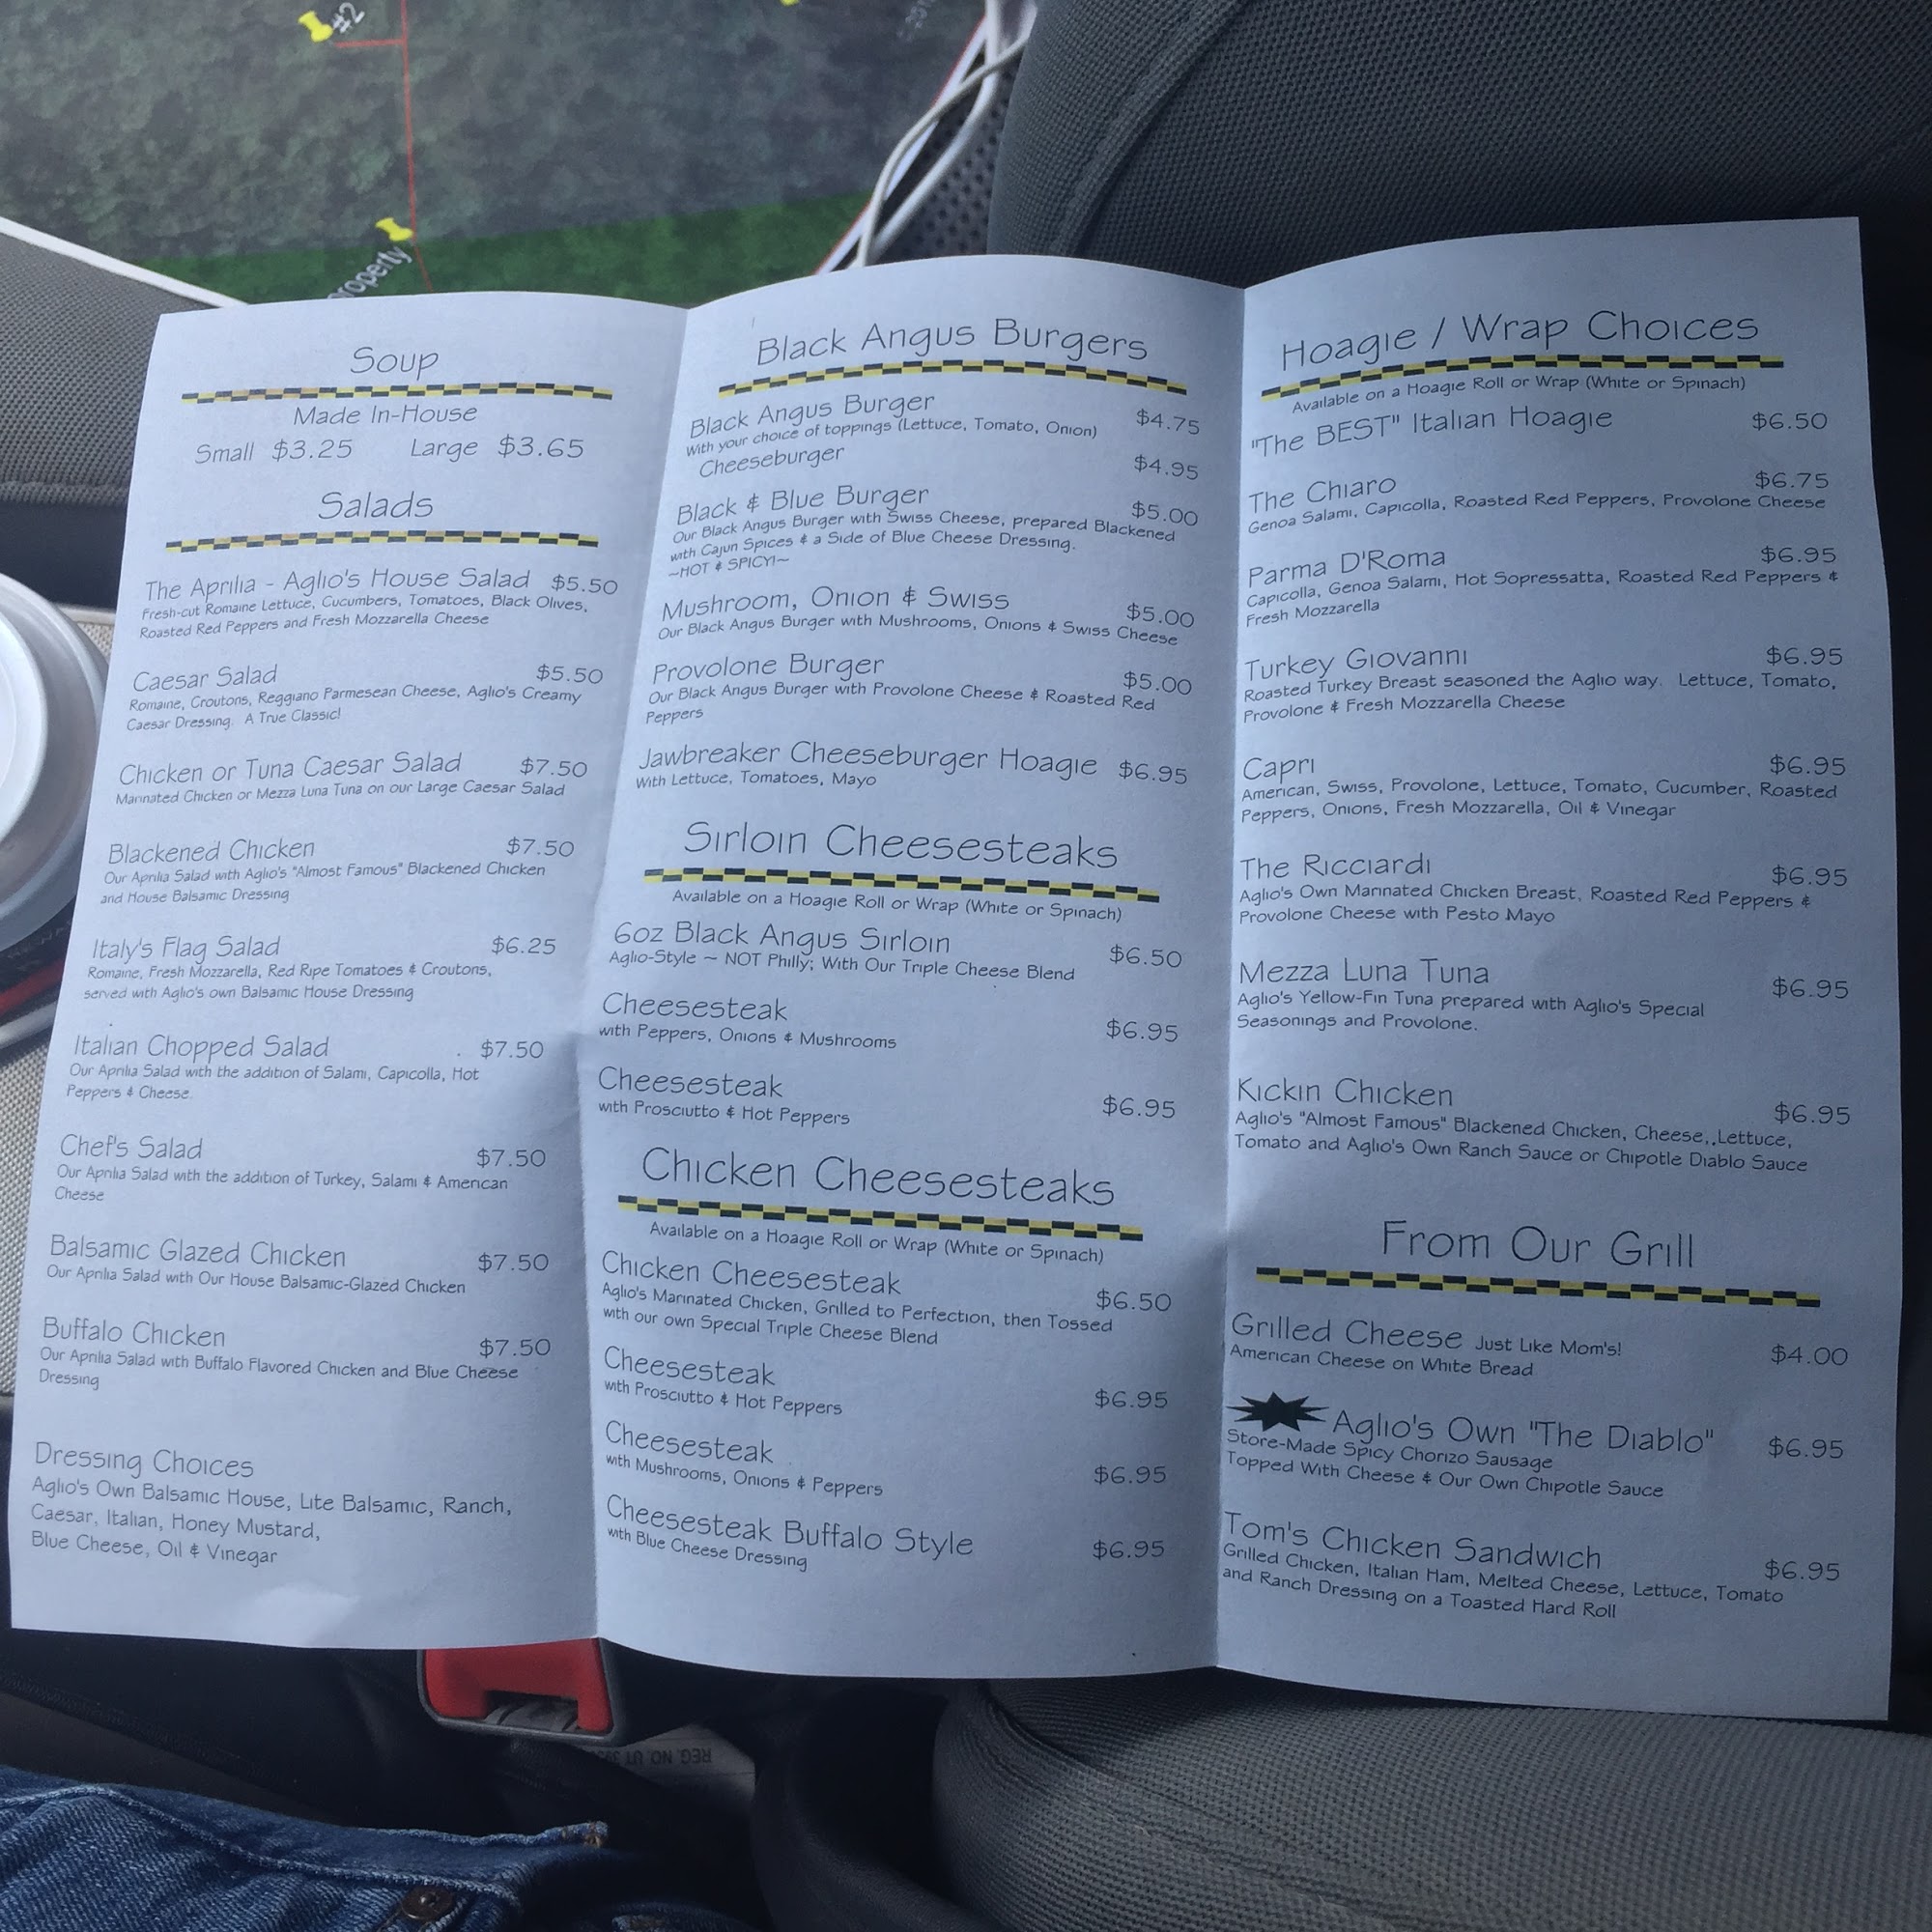 #2
Property
Soup
Made In-House
Small $3.25 Large $3.65
Salads
The Aprilia - Aglio's House Salad $5.50
Fresh-cut Romaine Lettuce, Cucumbers, Tomatoes, Black Olives,
Roasted Red Peppers and Fresh Mozzarella Cheese
Caesar Salad $5.50
Romaine, Croutons, Reggiano Parmesean Cheese, Aglio's Creamy
Caesar Dressing. A True Classic!
Chicken or Tuna Caesar Salad $7.50
Marinated Chicken or Mezza Luna Tuna on our Large Caesar Salad
Blackened Chicken $7.50
Our Aprilia Salad with Aglio's "Almost Famous" Blackened Chicken
and House Balsamic Dressing
Italy's Flag Salad $6.25
Romaine, Fresh Mozzarella, Red Ripe Tomatoes & Croutons,
served with Aglio's own Balsamic House Dressing
Italian Chopped Salad $7.50
Our Aprilia Salad with the addition of Salami, Capicolla, Hot
Peppers & Cheese.
Chef's Salad $7.50
Our Aprilia Salad with the addition of Turkey, Salami & American
Cheese
Balsamic Glazed Chicken $7.50
Our Aprilia Salad with Our House Balsamic-Glazed Chicken
Buffalo Chicken $7.50
Our Aprilia Salad with Buffalo Flavored Chicken and Blue Cheese
Dressing
Dressing Choices
Aglio's Own Balsamic House, Lite Balsamic, Ranch,
Caesar, Italian, Honey Mustard,
Blue Cheese, Oil & Vinegar
Black Angus Burgers
Black Angus Burger $4.75
With your choice of toppings (Lettuce, Tomato, Onion)
Cheeseburger $4.95
Black & Blue Burger $5.00
Our Black Angus Burger with Swiss Cheese, prepared Blackened
with Cajun Spices & a Side of Blue Cheese Dressing.
~HOT & SPICY!~
Mushroom, Onion & Swiss $5.00
Our Black Angus Burger with Mushrooms, Onions & Swiss Cheese
Provolone Burger $5.00
Our Black Angus Burger with Provolone Cheese & Roasted Red
Peppers
Jawbreaker Cheeseburger Hoagie $6.95
With Lettuce, Tomatoes, Mayo
Sirloin Cheesesteaks
Available on a Hoagie Roll or Wrap (White or Spinach)
6oz Black Angus Sirloin $6.50
Aglio-Style ~ NOT Philly; With Our Triple Cheese Blend
Cheesesteak $6.95
with Peppers, Onions & Mushrooms
Cheesesteak $6.95
with Prosciutto & Hot Peppers
Chicken Cheesesteaks
Available on a Hoagie Roll or Wrap (White or Spinach)
Chicken Cheesesteak $6.50
Aglio's Marinated Chicken, Grilled to Perfection, then Tossed
with our own Special Triple Cheese Blend
Cheesesteak $6.95
with Prosciutto & Hot Peppers
Cheesesteak $6.95
with Mushrooms, Onions & Peppers
Cheesesteak Buffalo Style $6.95
with Blue Cheese Dressing
Hoagie / Wrap Choices
Available on a Hoagie Roll or Wrap (White or Spinach)
"The BEST" Italian Hoagie $6.50
The Chiaro $6.75
Genoa Salami, Capicolla, Roasted Red Peppers, Provolone Cheese
Parma D'Roma $6.95
Capicolla, Genoa Salami, Hot Sopressatta, Roasted Red Peppers &
Fresh Mozzarella
Turkey Giovanni $6.95
Roasted Turkey Breast seasoned the Aglio way. Lettuce, Tomato,
Provolone & Fresh Mozzarella Cheese
Capri $6.95
American, Swiss, Provolone, Lettuce, Tomato, Cucumber, Roasted
Peppers, Onions, Fresh Mozzarella, Oil & Vinegar
The Ricciardi $6.95
Aglio's Own Marinated Chicken Breast, Roasted Red Peppers &
Provolone Cheese with Pesto Mayo
Mezza Luna Tuna $6.95
Aglio's Yellow-Fin Tuna prepared with Aglio's Special
Seasonings and Provolone.
Kickin Chicken $6.95
Aglio's "Almost Famous" Blackened Chicken, Cheese,,Lettuce,
Tomato and Aglio's Own Ranch Sauce or Chipotle Diablo Sauce
From Our Grill
Grilled Cheese Just Like Mom's! $4.00
American Cheese on White Bread
Aglio's Own "The Diablo" $6.95
Store-Made Spicy Chorizo Sausage
Topped With Cheese & Our Own Chipotle Sauce
Tom's Chicken Sandwich $6.95
Grilled Chicken, Italian Ham, Melted Cheese, Lettuce, Tomato
and Ranch Dressing on a Toasted Hard Roll
REG. NO. UT